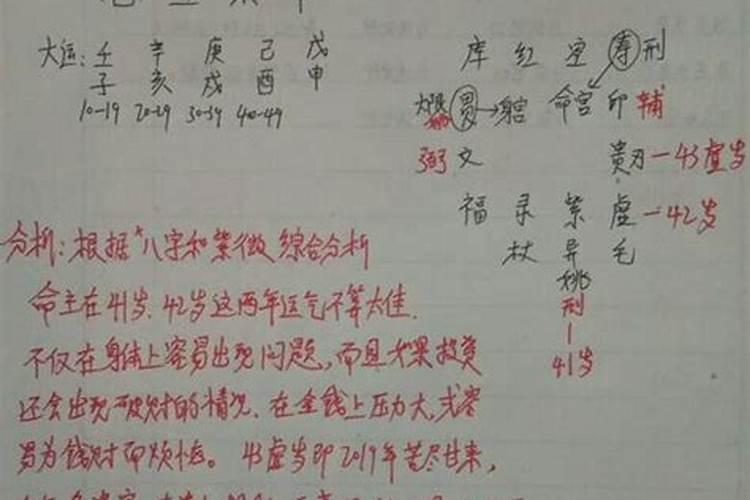 大运: 壬 辛 庚 己 戊
子 亥 戌 酉 申
10-19 20-29 30-39 40-49
库 红 空 寿 刑
大限 → 身宫 命宫 印 辅
弼 文 贵刃 - 43虚岁
福 录 紫 虚 - 42岁
杖 异 毛
姚
刑
41岁
分析: 根据“八字和紫微综合分析
命主在41岁、42岁这两年运气不算太佳.
不仅在身体上容易出现问题,而且如果投资
还会出现破财的情况.在金钱上压力大,或容
易为钱财而烦恼。43虚岁即2019年苦尽甘来,